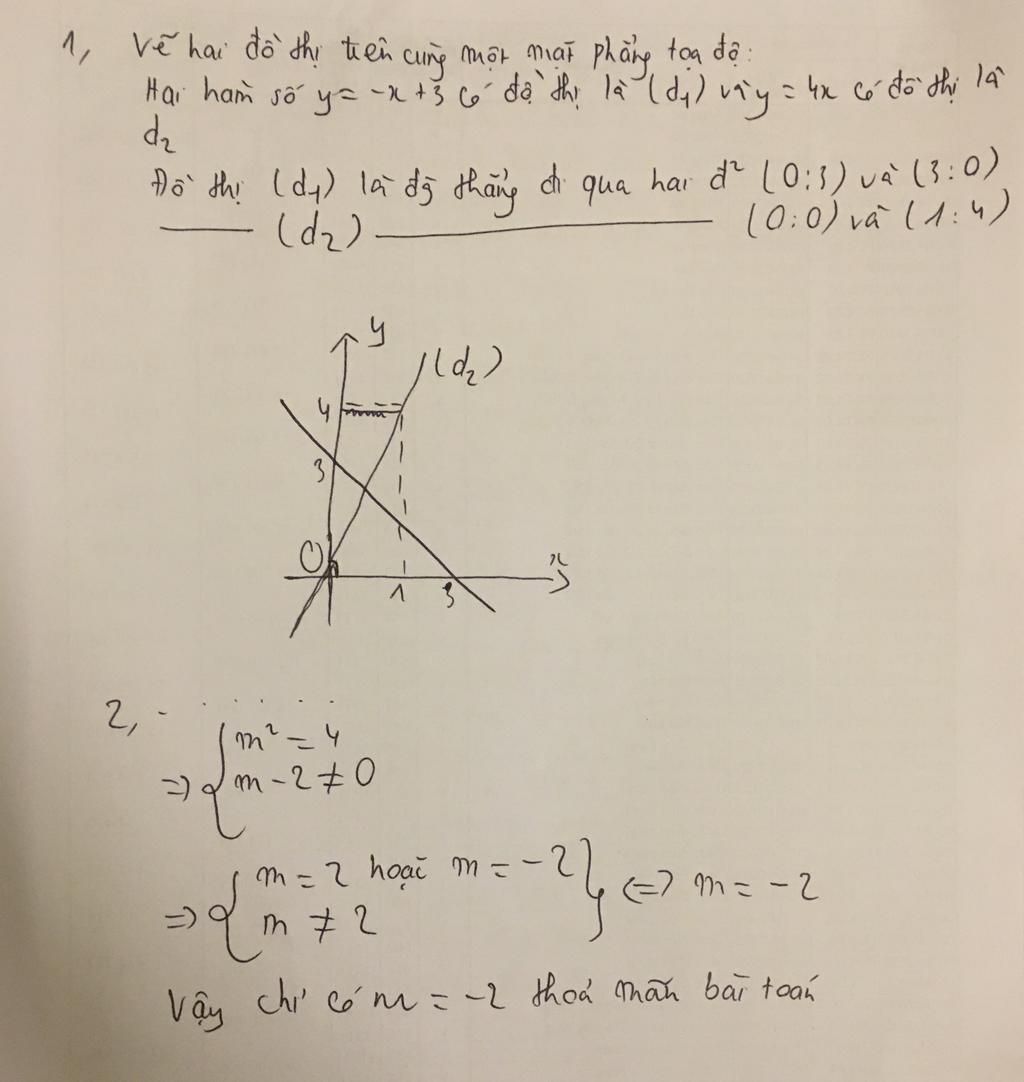 1, Vẽ hai đồ thị trên cùng một mặt phẳng tọa độ:
Hai hàm số y = -x + 3 có đồ thị là (d1) và y = 4x có đồ thị là
d2
Đồ thị (d1) là đg thẳng đi qua hai đ² (0;3) và (3;0)
(d2) (0;0) và (1;4)
y
(d2)
4
3
O
1
3
x
2, - . . . . .
=> { m² = 4
m - 2 ≠ 0
=> { m = 2 hoặc m = -2 } <=> m = -2
m ≠ 2
Vậy chỉ có m = -2 thoả mãn bài toán